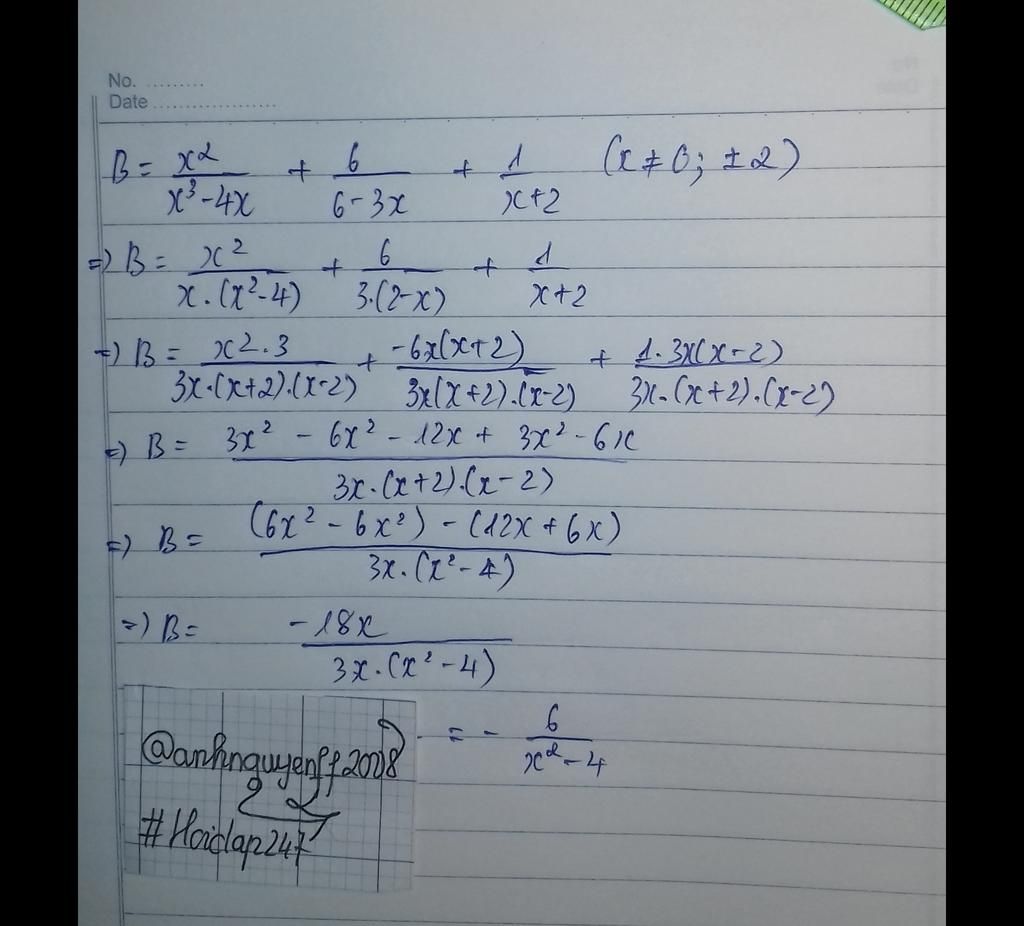 No. .........
Date ...................
B = x²/(x³-4x) + 6/(6-3x) + 1/(x+2) (x ≠ 0; ±2)
=) B = x²/(x.(x²-4)) + 6/(3.(2-x)) + 1/(x+2)
=) B = (x².3)/(3x.(x+2).(x-2)) + (-6x(x+2))/(3x(x+2).(x-2)) + (1.3x(x-2))/(3x.(x+2).(x-2))
=) B = (3x² - 6x² - 12x + 3x² - 6x)/(3x.(x+2).(x-2))
=) B = ((6x² - 6x²) - (12x + 6x))/(3x.(x²-4))
=) B = (-18x)/(3x.(x²-4))
= - 6/(x²-4)
@anhnguyenff2008
#Hoidap247